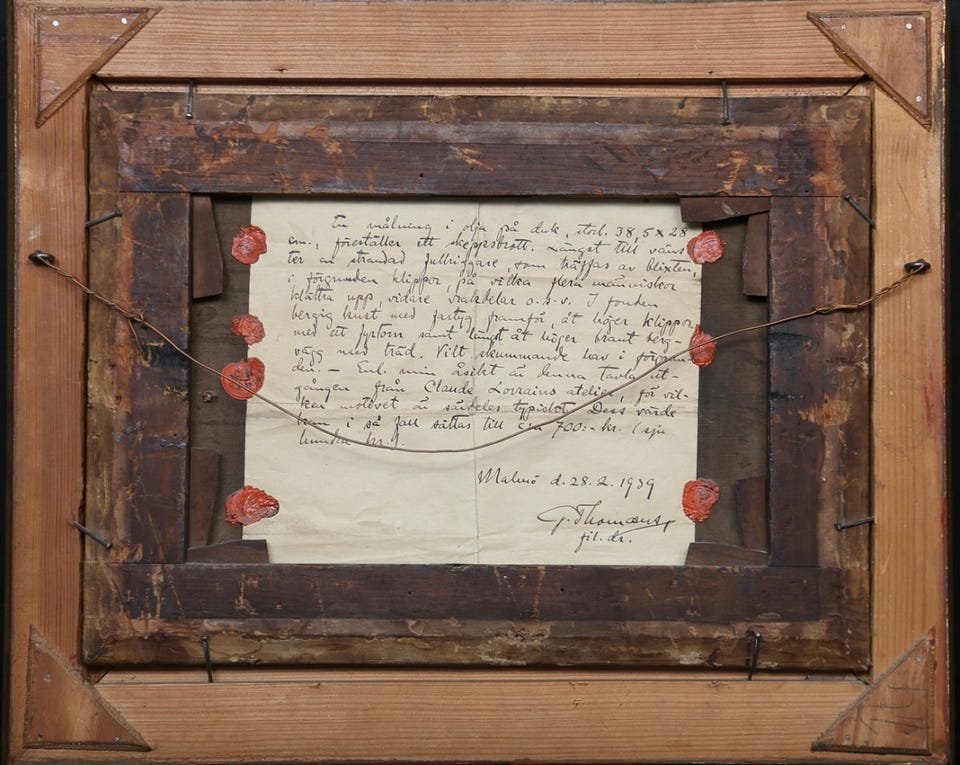 En målning i olja på duk, storl. 38,5 x 28
cm., föreställer ett skeppsbrott. Längst till väns-
ter en strandad fullriggare, som träffas av blixten,
i förgrunden klippor, på vilka flera människor
klättra upp, vidare vrakdelar o.s.v. I fonden
bergig kust med fartyg framför, åt höger klippor
med ett fyrtorn samt längst åt höger brant berg-
vägg med träd. Vilt skummande hav i förgrun-
den. — Enl. min åsikt är denna tavla ut-
gången från Claude Lorrains atelier, för vil-
ken motivet är särdeles typiskt. Dess värde
kan i så fall sättas till c:a 700:- kr. (sju
hundra kr.).
Malmö d. 28.2. 1939
fil. dr.